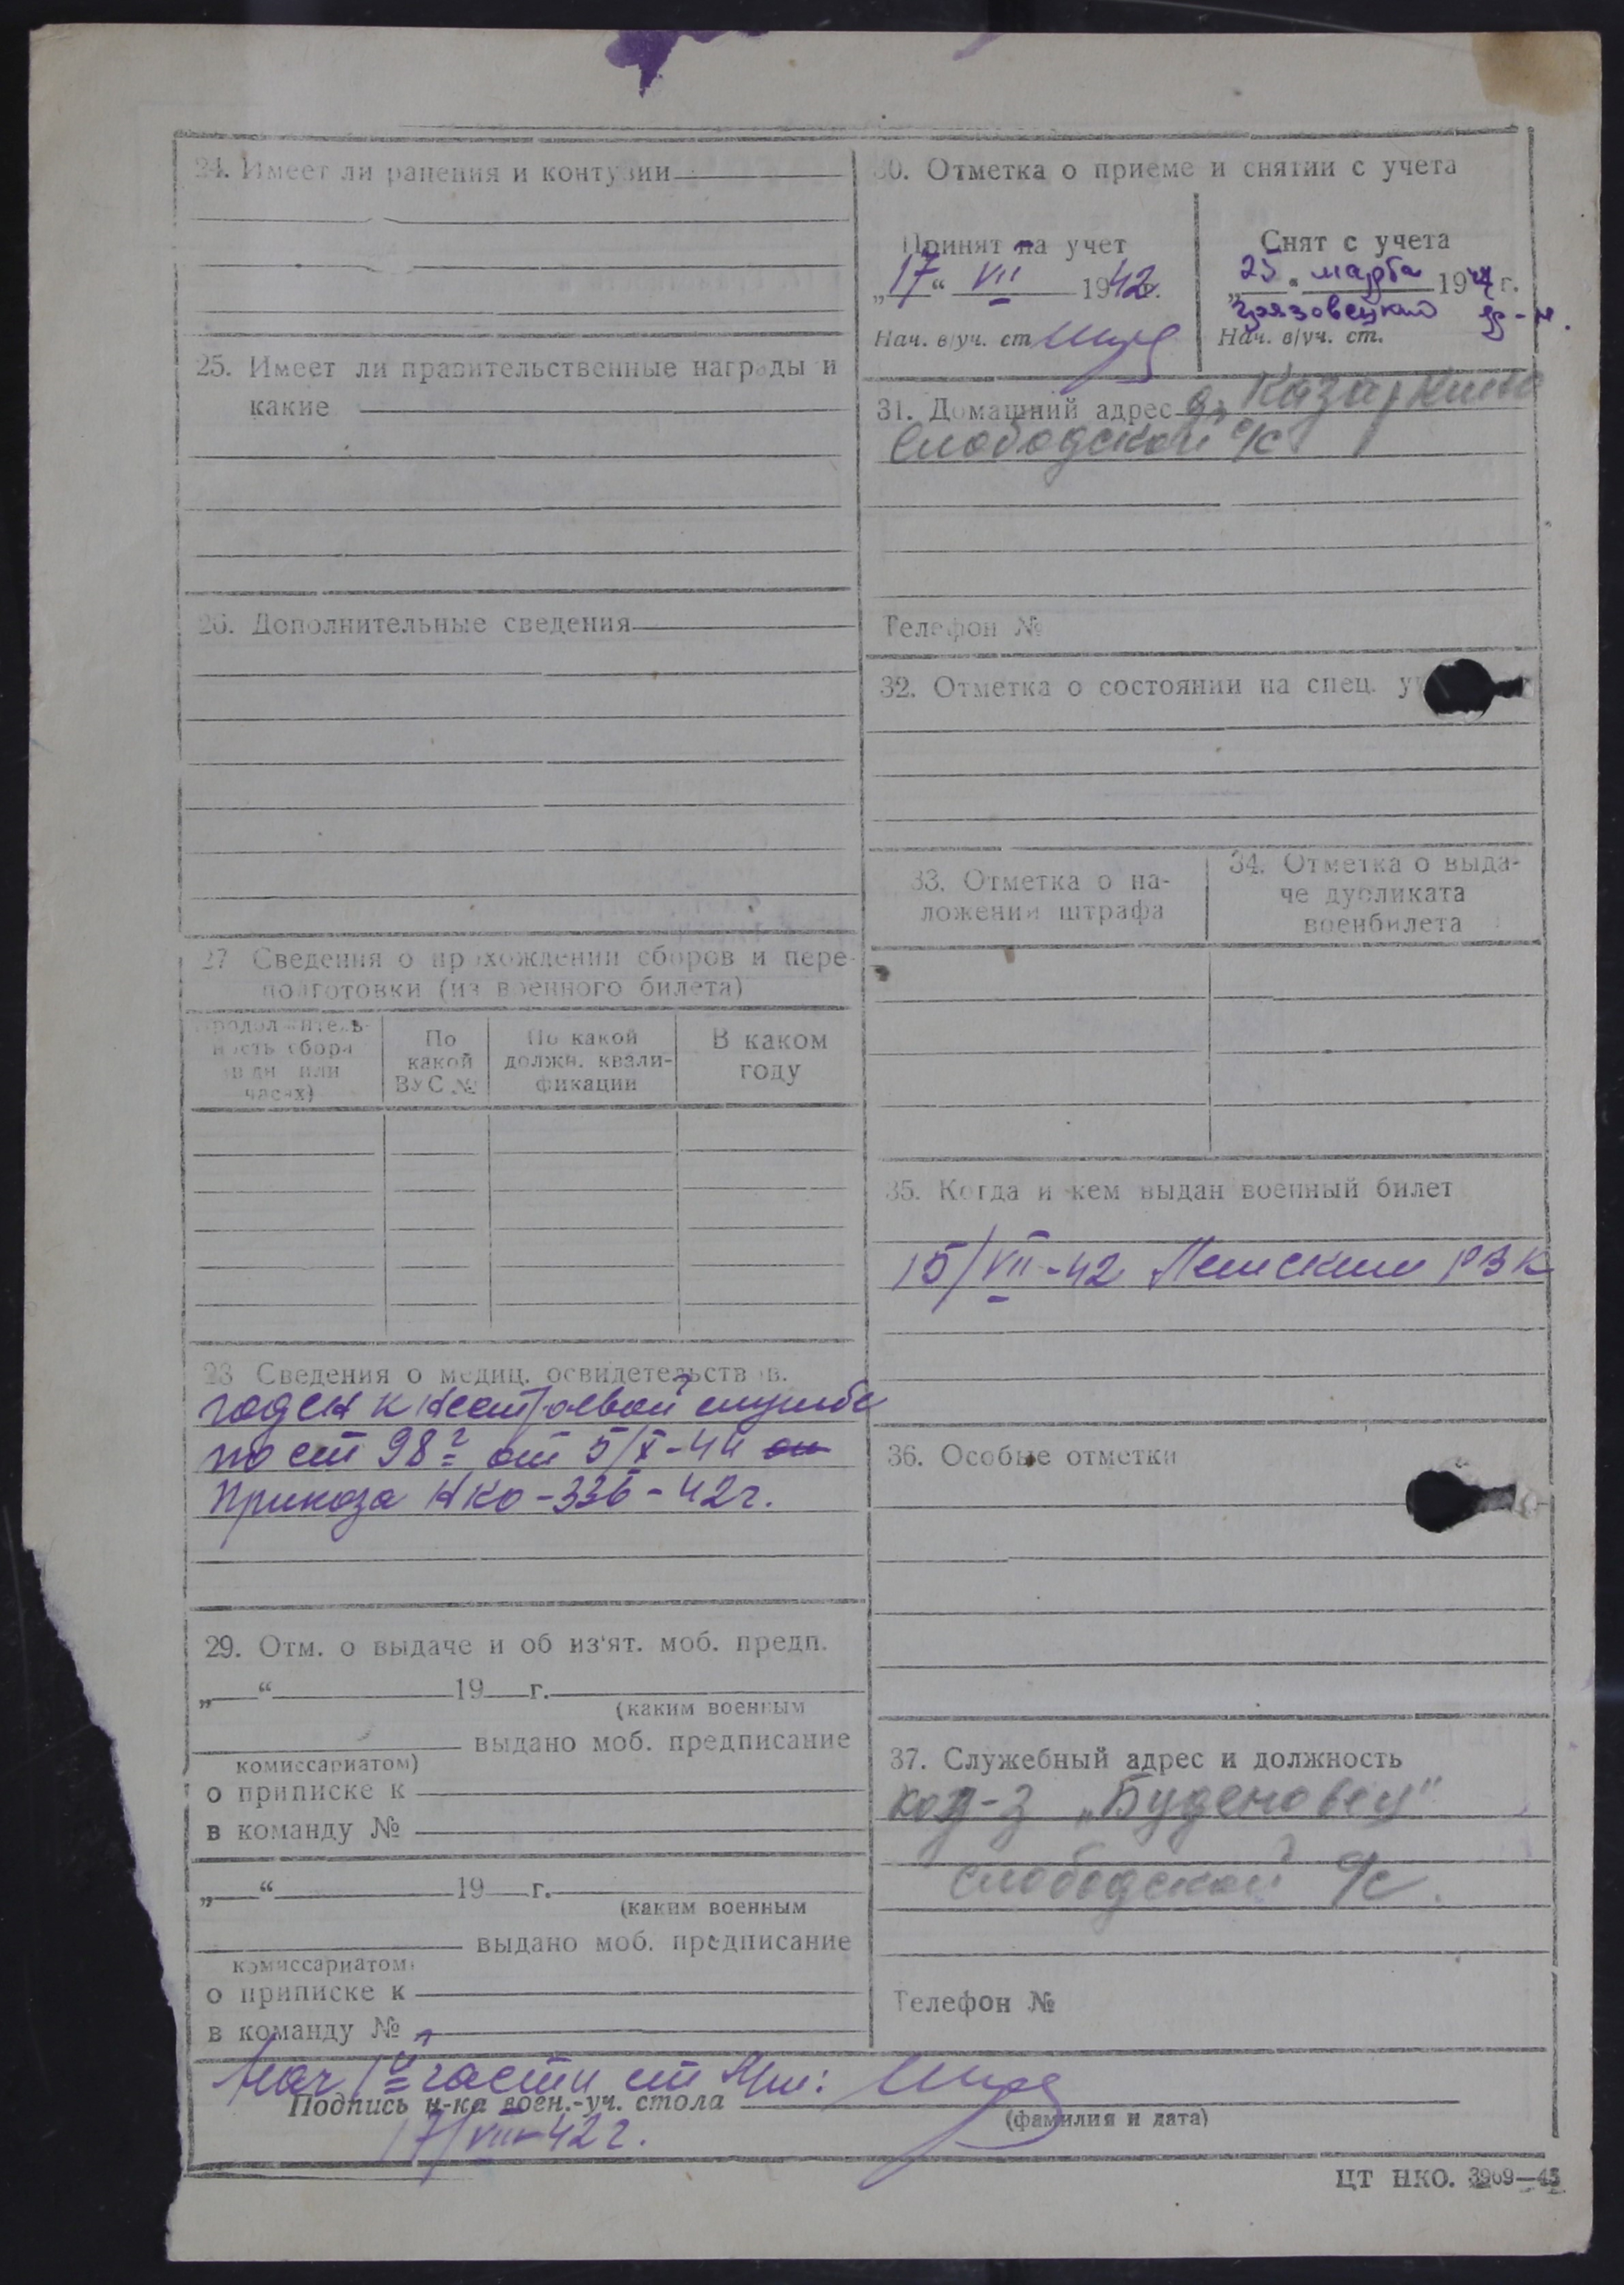 24. Имеет ли ранения и контузии
25. Имеет ли правительственные награды и
какие
26. Дополнительные сведения
27 Сведения о прохождении сборов и пере-
подготовки (из военного билета)
Продолжитель-
ность сбора
(в дн или
часах)
По
какой
ВУС №
По какой
должн. квали-
фикации
В каком
году
28 Сведения о медиц. освидетельствов.
годен к нестроевой службе
по ст 98 от 5/X-44
Приказа НКО-336-42г.
29. Отм. о выдаче и об из'ят. моб. предп.
„ “ 19 г.
(каким военным
выдано моб. предписание
комиссариатом)
о приписке к
в команду №
„ “ 19 г.
(каким военным
выдано моб. предписание
комиссариатом)
о приписке к
в команду №
30. Отметка о приеме и снятии с учета
Принят на учет
„17“ VII 1942г.
Нач. в/уч. ст
Снят с учета
„25“ марта 1944г.
Грязовецкий р-н.
Нач. в/уч. ст.
31. Домашний адрес д. Казаркино
Слободской с/с
Телефон №
32. Отметка о состоянии на спец.
33. Отметка о на-
ложении штрафа
34. Отметка о выда-
че дубликата
военбилета
35. Когда и кем выдан военный билет
15/VII-42 Лежским РВК
36. Особые отметки
37. Служебный адрес и должность
кол-з „Буденовец"
Слободской с/с.
Телефон №
Нач 1й части
Подпись н-ка воен.-уч. стола
(фамилия и дата)
17/VII-42г.
ЦТ НКО. 3969—43